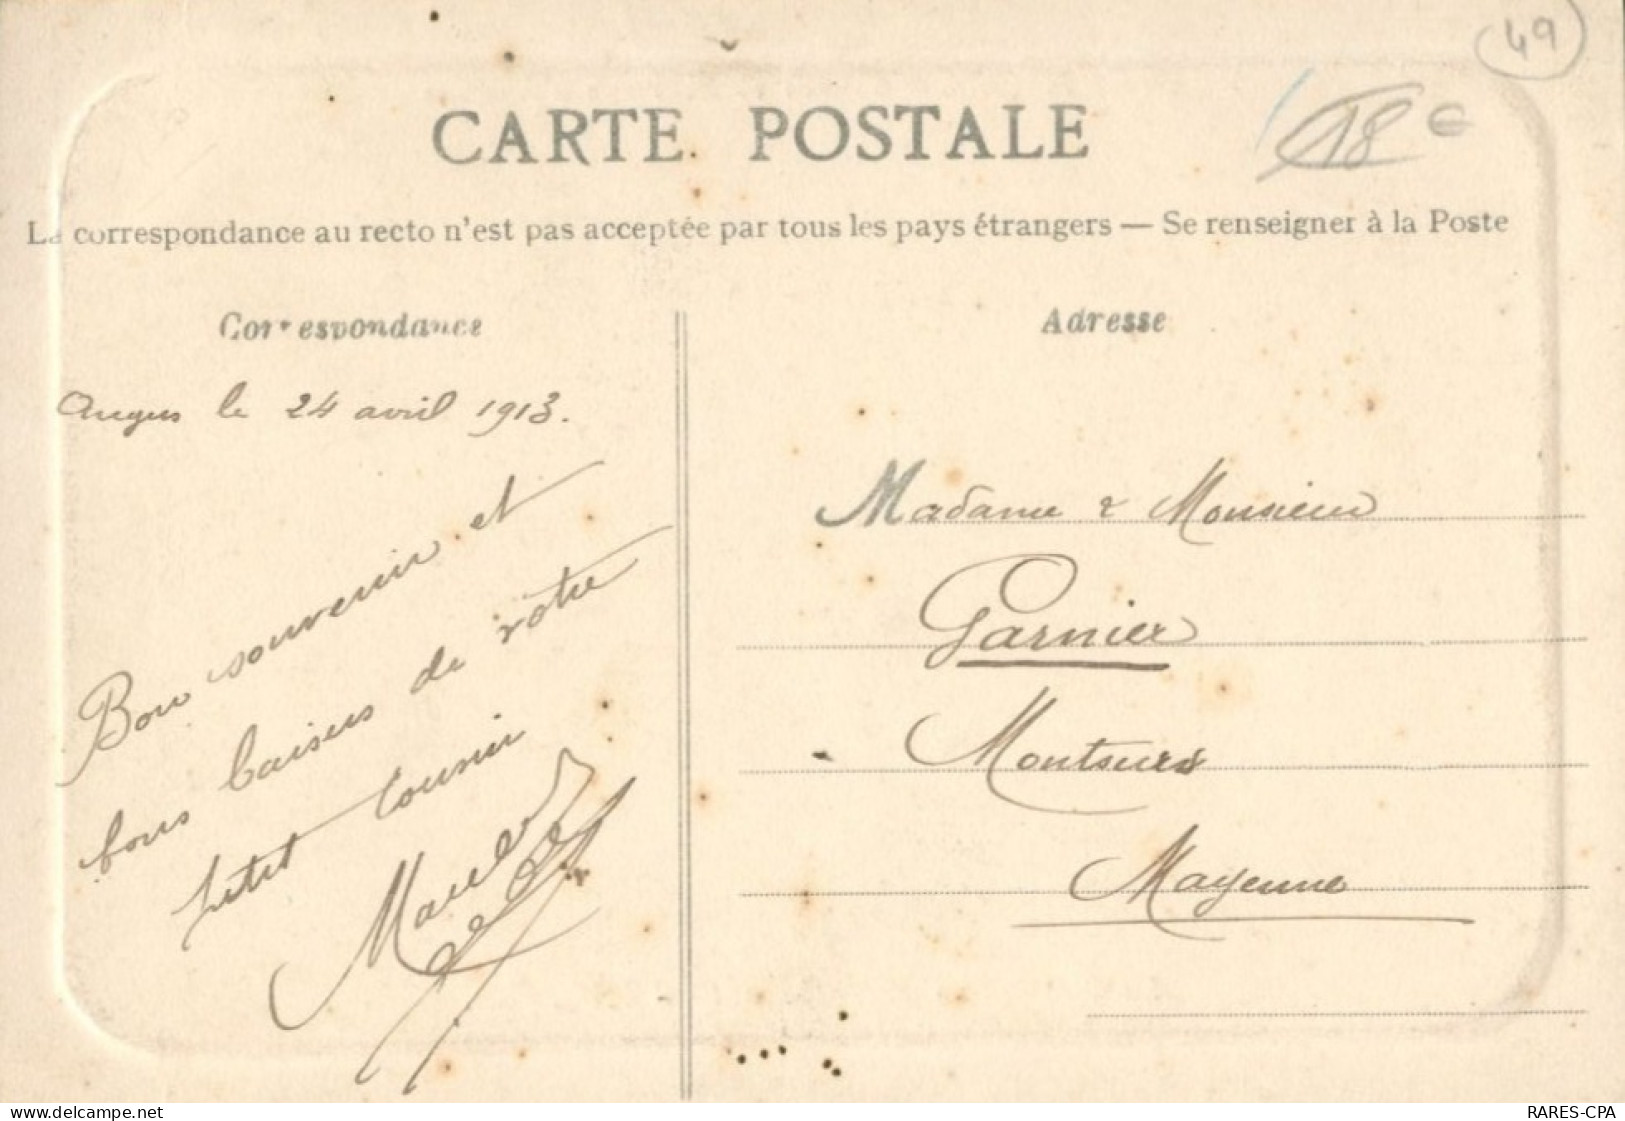 49
18 €
CARTE POSTALE
La correspondance au recto n'est pas acceptée par tous les pays étrangers — Se renseigner à la Poste
Correspondance
Angers le 24 avril 1913.
Bon souvenir et
bons baisers de votre
petit cousin
Marcel
Adresse
Madame & Monsieur
Garnier
Montsurs
Mayenne
www.delcampe.net
RARES-CPA